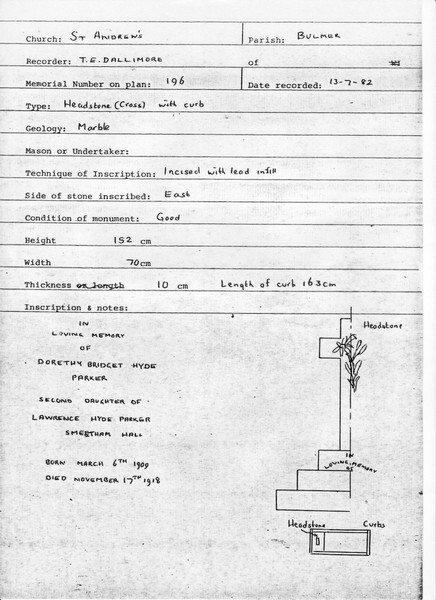 Church: St Andrew's Parish: BULMER
Recorder: T.E. DALLIMORE of
Memorial Number on plan: 196 Date recorded: 13-7-82
Type: Headstone (Cross) with curb
Geology: Marble
Mason or Undertaker:
Technique of Inscription: Incised with lead infill
Side of stone inscribed: East
Condition of monument: Good
Height 152 cm
Width 70cm
Thickness or length 10 cm Length of curb 163cm
Inscription & notes:
IN
LOVING MEMORY
OF
DORETHY BRIDGET HYDE
PARKER
SECOND DAUGHTER OF
LAWRENCE HYDE PARKER
SMEETHAM HALL
BORN MARCH 6TH 1909
DIED NOVEMBER 17TH 1918
Headstone
IN
LOVING MEMORY
OF
Headstone Curbs